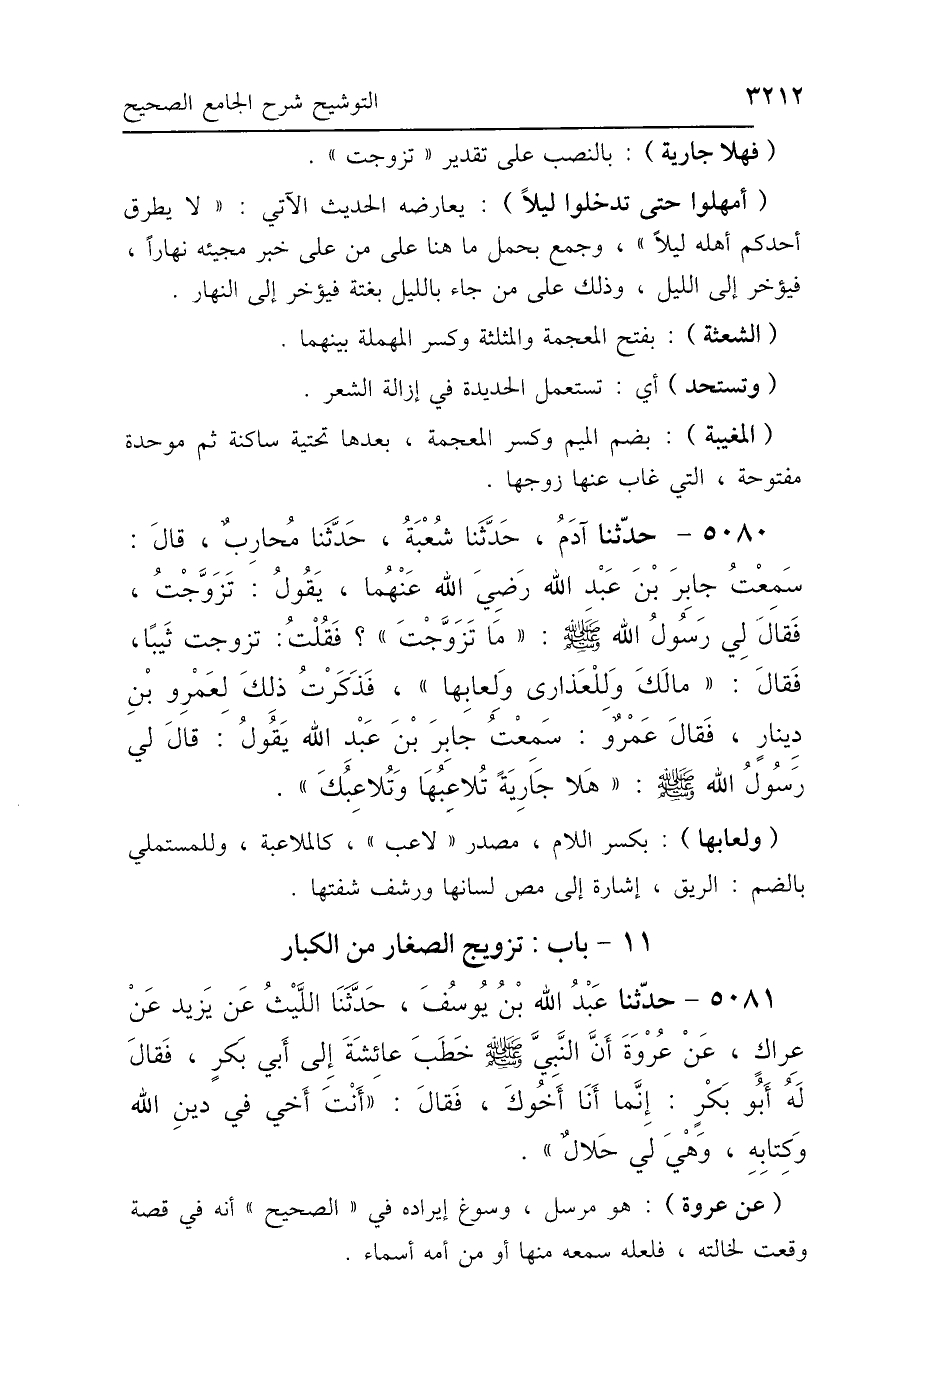 ٣٢١٢ التوشيح شرح الجامع الصحيح
( فهلا جارية ) : بالنصب على تقدير « تزوجت » .
( أمهلوا حتى تدخلوا ليلاً ) : يعارضه الحديث الآتي : « لا يطرق
أحدكم أهله ليلاً » ، وجمع بحمل ما هنا على من على خبر مجيئه نهاراً ،
فيؤخر إلى الليل ، وذلك على من جاء بالليل بغتة فيؤخر إلى النهار .
( الشعثة ) : بفتح المعجمة والمثلثة وكسر المهملة بينهما .
( وتستحد ) أي : تستعمل الحديدة في إزالة الشعر .
( المغيبة ) : بضم الميم وكسر المعجمة ، بعدها تحتية ساكنة ثم موحدة
مفتوحة ، التي غاب عنها زوجها .
٥٠٨٠ - حدّثنا آدَمُ ، حَدَّثَنا شُعْبَةُ ، حَدَّثَنا مُحارِبٌ ، قالَ :
سَمِعْتُ جابِرَ بْنَ عَبْدِ الله رَضِيَ الله عَنْهُما ، يَقُولُ : تَزَوَّجْتُ ،
فَقالَ لِي رَسُولُ الله ﷺ : « مَا تَزَوَّجْتَ » ؟ فَقُلْتُ: تزوجت ثَيبًا،
فَقالَ : « مالَكَ وَلِلْعَذارى وَلِعابِها » ، فَذَكَرْتُ ذلِكَ لِعَمْرِو بْنِ
دِينارٍ ، فَقالَ عَمْرٌو : سَمِعْتُ جابِرَ بْنَ عَبْدِ الله يَقُولُ : قالَ لي
رَسُولُ الله ﷺ : « هَلا جَارِيَةً تُلاعِبُهَا وَتُلاعِبُكَ » .
( ولعابها ) : بكسر اللام ، مصدر « لاعب » ، كالملاعبة ، وللمستملي
بالضم : الريق ، إشارة إلى مص لسانها ورشف شفتها .
١١ - باب : تزويج الصغار من الكبار
٥٠٨١ - حدّثنا عَبْدُ الله بْنُ يُوسُفَ ، حَدَّثَنَا اللَّيْثُ عَن يَزِيد عَنْ
عِراكٍ ، عَنْ عُرْوَةَ أَنَّ النَّبِيَّ ﷺ خَطَبَ عائِشَةَ إِلى أَبي بَكرٍ ، فَقالَ
لَهُ أَبُو بَكْرٍ : إِنَّما أَنَا أَخُوكَ ، فَقالَ : «أَنْتَ أَخي في دينِ الله
وَكِتابِهِ ، وَهْيَ لي حَلالٌ » .
( عن عروة ) : هو مرسل ، وسوغ إيراده في « الصحيح » أنه في قصة
وقعت لخالته ، فلعله سمعه منها أو من أمه أسماء .